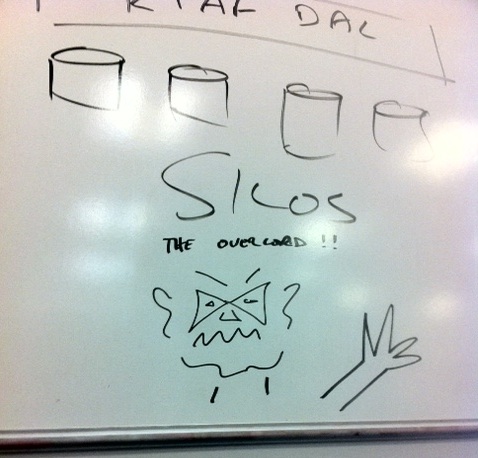 DAL
SILOS
THE OVERLORD !!